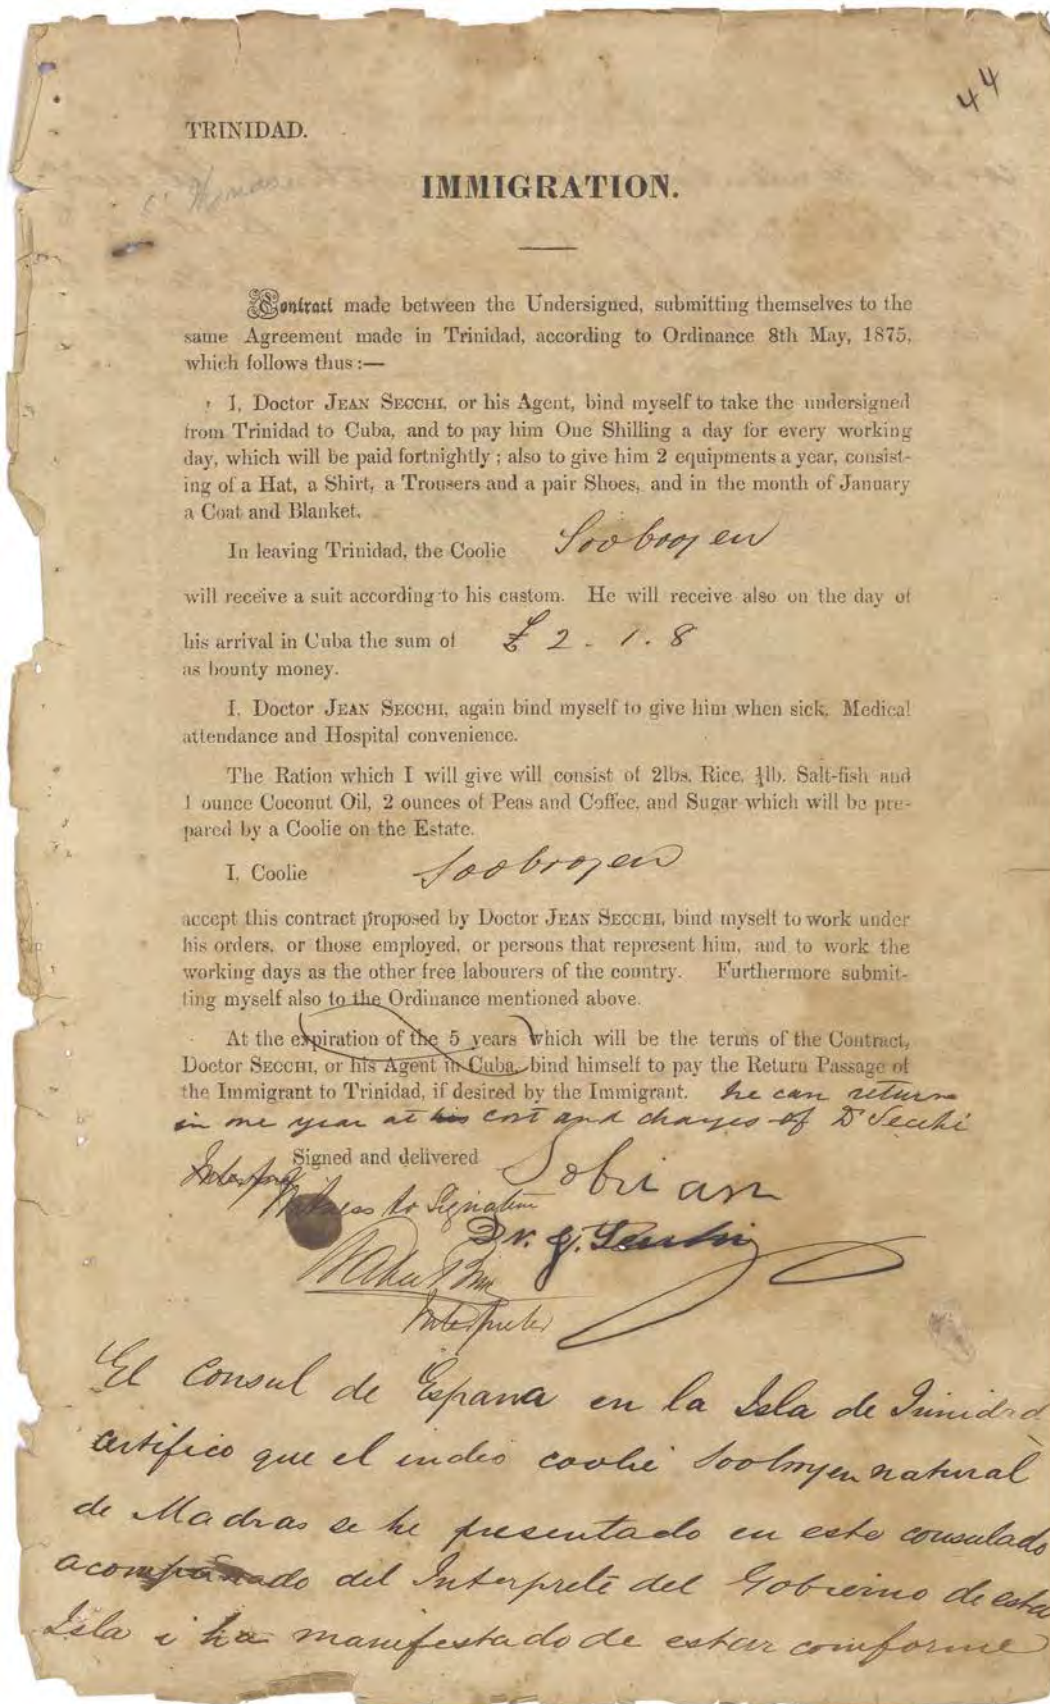 44
TRINIDAD.
IMMIGRATION.
Contract made between the Undersigned, submitting themselves to the
same Agreement made in Trinidad, according to Ordinance 8th May, 1875,
which follows thus :—
I, Doctor JEAN SECCHI, or his Agent, bind myself to take the undersigned
from Trinidad to Cuba, and to pay him One Shilling a day for every working
day, which will be paid fortnightly ; also to give him 2 equipments a year, consist-
ing of a Hat, a Shirt, a Trousers and a pair Shoes, and in the month of January
a Coat and Blanket.
In leaving Trinidad, the Coolie Soobrogen
will receive a suit according to his custom. He will receive also on the day of
his arrival in Cuba the sum of £ 2 - 1 . 8
as bounty money.
I, Doctor JEAN SECCHI, again bind myself to give him when sick, Medical
attendance and Hospital convenience.
The Ration which I will give will consist of 2lbs. Rice, lb. Salt-fish and
1 ounce Coconut Oil, 2 ounces of Peas and Coffee, and Sugar which will be pre-
pared by a Coolie on the Estate.
I, Coolie Soobrogen
accept this contract proposed by Doctor JEAN SECCHI, bind myself to work under
his orders, or those employed, or persons that represent him, and to work the
working days as the other free labourers of the country. Furthermore submit-
ting myself also to the Ordinance mentioned above.
At the expiration of the 5 years which will be the terms of the Contract,
Doctor SECCHI, or his Agent in Cuba, bind himself to pay the Return Passage of
the Immigrant to Trinidad, if desired by the Immigrant. he can return
in one year at his cost and charges of Dr Secchi
Signed and delivered
Witness to Signature
Dr. J. Secchi
Interpreter
El Consul de España en la Isla de Trinidad
certifico que el indio coolie Soobrogen natural
de Madras se he presentado en este consulado
acompañado del Interprete del Gobierno de esta
Isla i ha manifestado de estar comforme